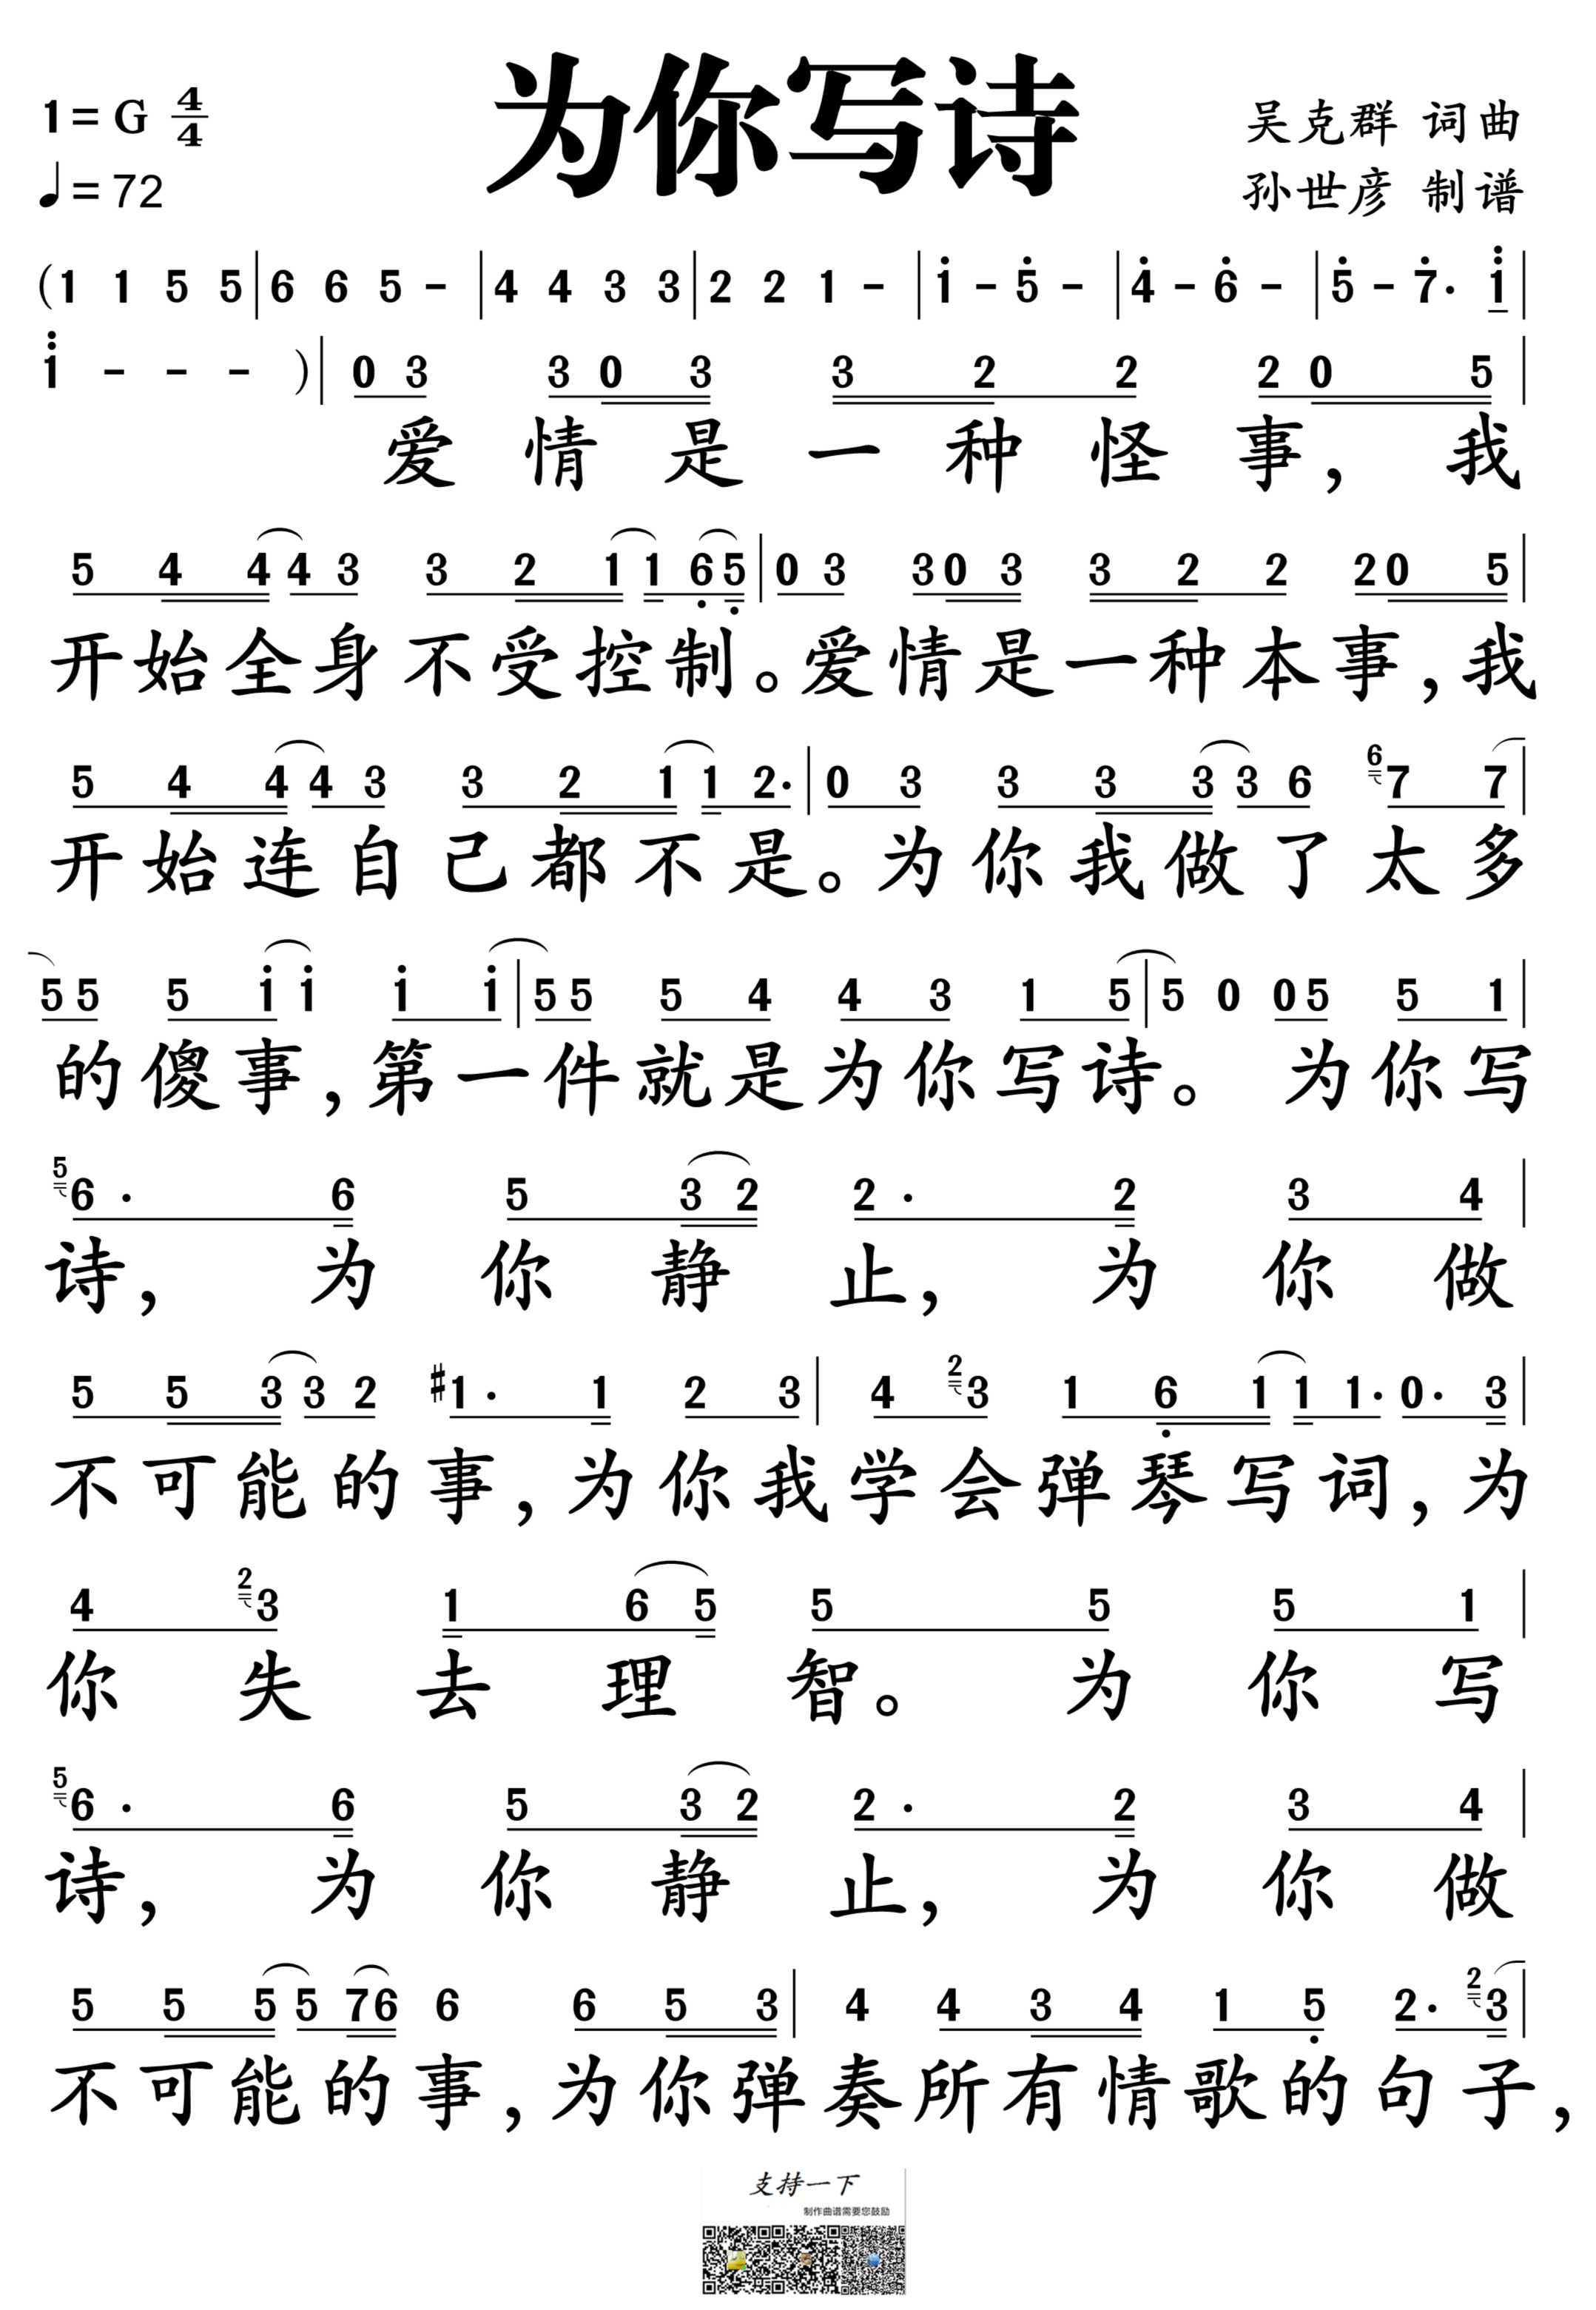 为你写诗
1=G 4/4
♩=72
吴克群 词曲
孙世彦 制谱
(1 1 5 5|6 6 5 -|4 4 3 3|2 2 1 -|i - 5̇ -|4̇ - 6̇ -|5̇ - 7̇· 1̈|
1̈ - - - )|0 3 3 0 3 3 2 2 2 0 5|
爱情是一种怪事,我
5 4 4 4 3 3 2 1 1 6̣ 5̣|0 3 3 0 3 3 2 2 2 0 5|
开始全身不受控制。爱情是一种本事,我
5 4 4 4 3 3 2 1 1 2·|0 3 3 3 3 3 6 6 7 7|
开始连自己都不是。为你我做了太多
5 5 5 i i i i|5 5 5 4 4 3 1 5|5 0 0 5 5 1|
的傻事,第一件就是为你写诗。为你写
5 6· 6 5 3 2 2· 2 3 4|
诗,为你静止,为你做
5 5 3 3 2 #1· 1 2 3|4 2 3 1 6̣ 1 1 1· 0· 3|
不可能的事,为你我学会弹琴写词,为
4 2 3 1 6 5 5 5 5 1|
你失去理智。为你写
5 6· 6 5 3 2 2· 2 3 4|
诗,为你静止,为你做
5 5 5 5 7 6 6 6 5 3|4 4 3 4 1 5̣ 2· 2 3|
不可能的事,为你弹奏所有情歌的句子,
支持一下
制作曲谱需要您鼓励